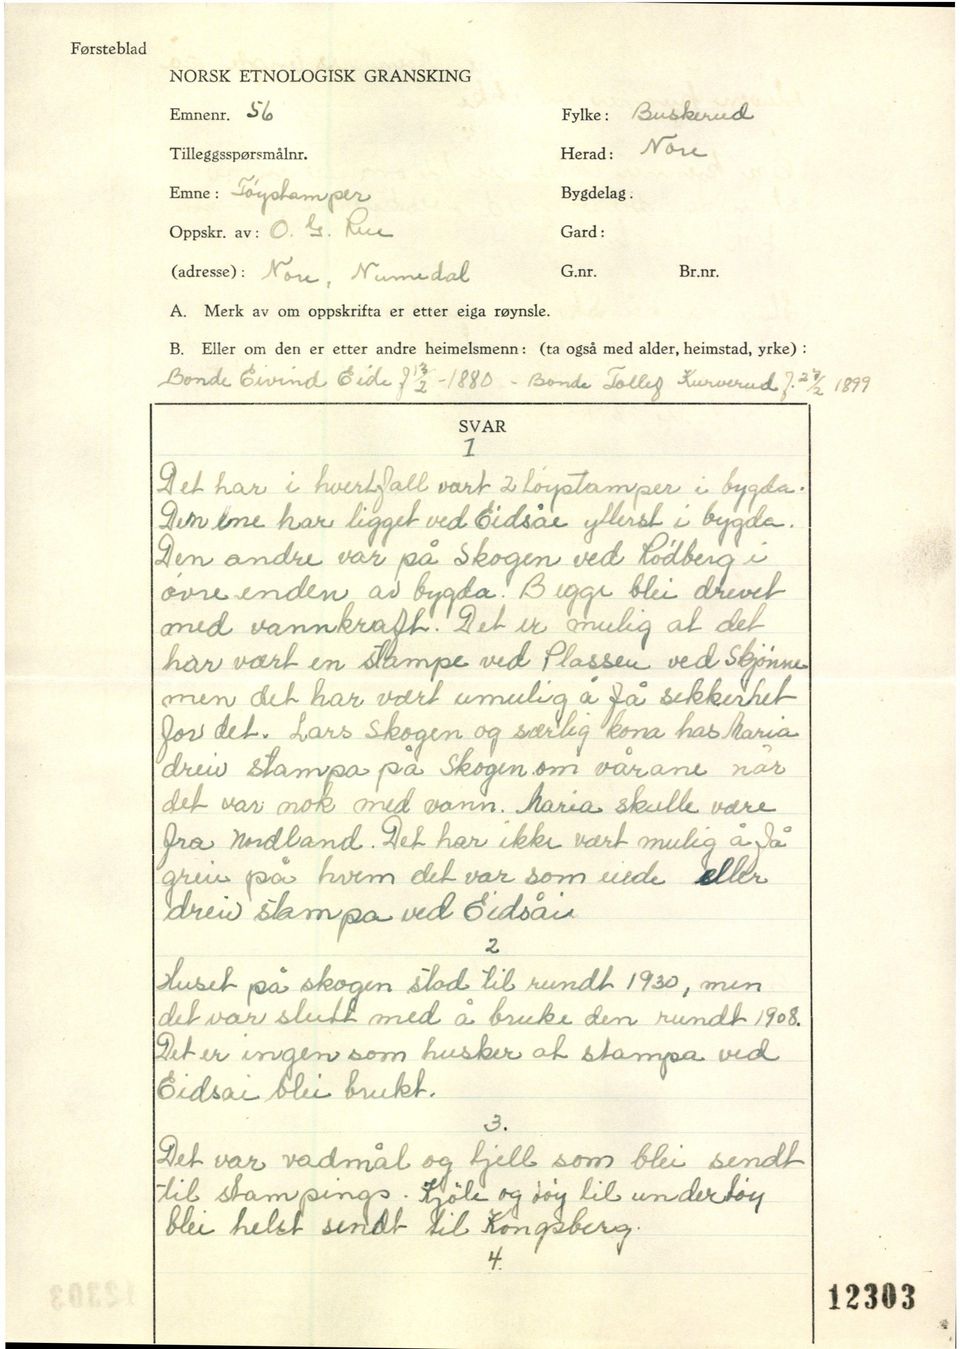 Førsteblad
NORSK ETNOLOGISK GRANSKING
Emnenr. 56 Fylke: Buskerud
Tilleggsspørsmålnr. Herad: Nore
Emne: Töystamper Bygdelag.
Oppskr. av: O. G. Rue Gard:
(adresse): Nore, Numedal G.nr. Br.nr.
A. Merk av om oppskrifta er etter eiga røynsle.
B. Eller om den er etter andre heimelsmenn: (ta også med alder, heimstad, yrke):
Bonde Eivind Eide f 13/2 -1880 - Bonde Tollef Kurverud f. 27/2 1899
SVAR
1
Det har i hvertfall vært 2 töystamper i bygda.
Den ene har ligget ved Eidsåe ytterst i bygda.
Den andre var på Skogen ved Rödberg i
övre enden av bygda. Begge blei drevet
med vannkraft. Det er mulig at det
har vært en stampe ved Plassen ved Skjönne
men det har vært umulig å få sikkerhet
for det. Lars Skogen og særlig kona has Maria
dreiv stampa på Skogen om vårane når
det var nok med vann. Maria skulle være
fra Nordland. Det har ikke vært mulig å få
greie på hvem det var som eiede eller
dreiv stampa ved Eidsåie
2
Huset på skogen stod til rundt 1930, men
det var slutt med å bruke den rundt 1908.
Det er ingen som husker at stampa ved
Eidsai blei brukt.
3.
Det var vadmål og fjell som blei sendt
til stampings. Kjöle og töy til undertöy
blei helst sendt til Kongsberg.
4.
12303